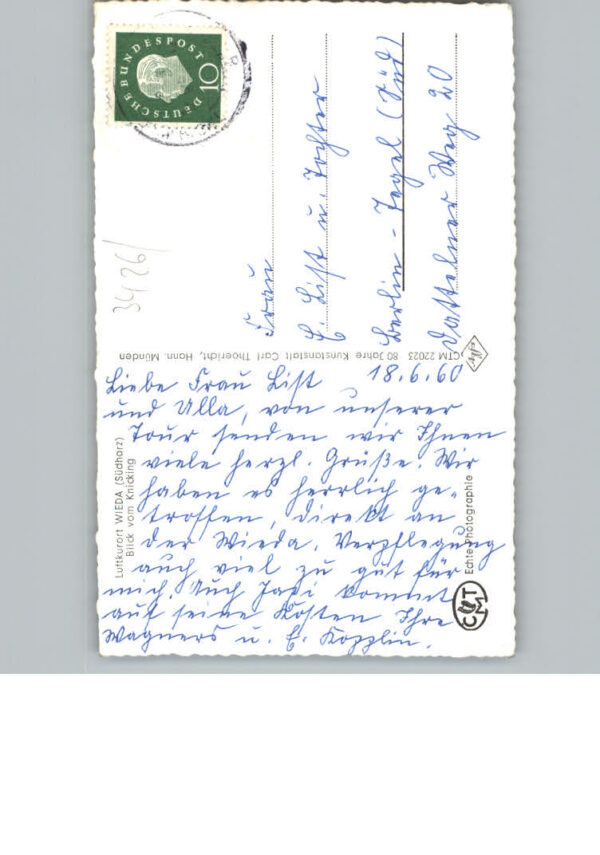 DEUTSCHE BUNDESPOST
10
34 26/
Frau
E. List u. Tochter
Berlin - Tegel (Süd)
Dattelner Weg 20
CTM 22023 80 Jahre Kunstanstalt Carl Thoericht, Hann. Münden
Liebe Frau List
und Ulla, von unserer
Tour senden wir Ihnen
viele herzl. Grüße. Wir
haben es herrlich ge-
troffen, direkt an
der Wieda. Verpflegung
auch viel zu gut für
mich. Auch kommt
auf seine Kosten Ihre
Wagners u. E. Kopplin.
Luftkurort WIEDA (Südharz)
Blick vom Knicking
Echte Photographie
CTM